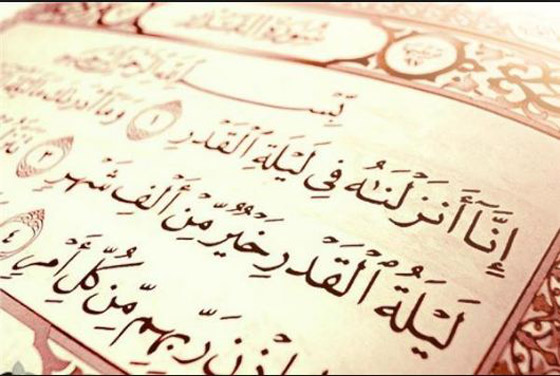 سُورَةُ الْقَدْرِ
بِسْمِ اللَّهِ الرَّحْمَٰنِ الرَّحِيمِ
إِنَّآ أَنزَلْنَٰهُ فِى لَيْلَةِ ٱلْقَدْرِ ١ وَمَآ أَدْرَىٰكَ مَا لَيْلَةُ
لَيْلَةُ ٱلْقَدْرِ خَيْرٌ مِّنْ أَلْفِ شَهْرٍ ٣ تَنَزَّلُ
بِإِذْنِ رَبِّهِم مِّن كُلِّ أَمْرٍ ٤